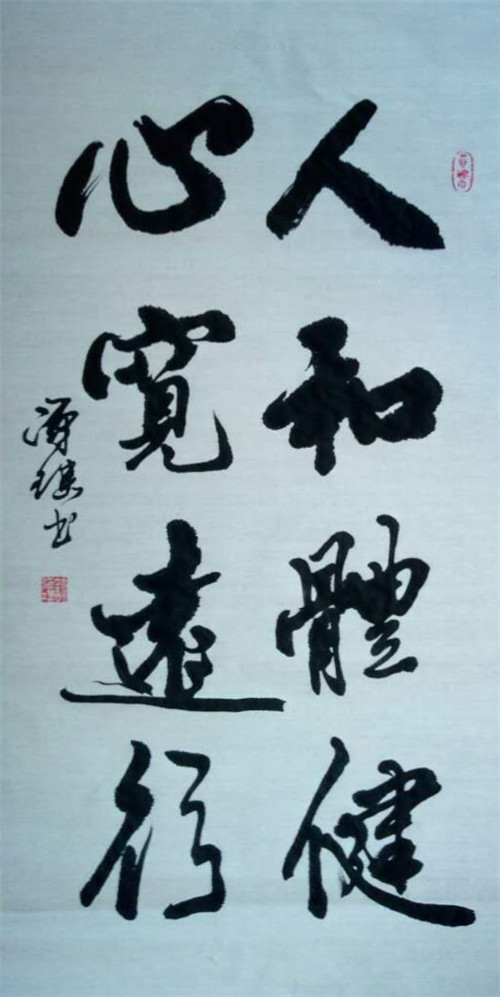 人和體健
心寬遠行
書